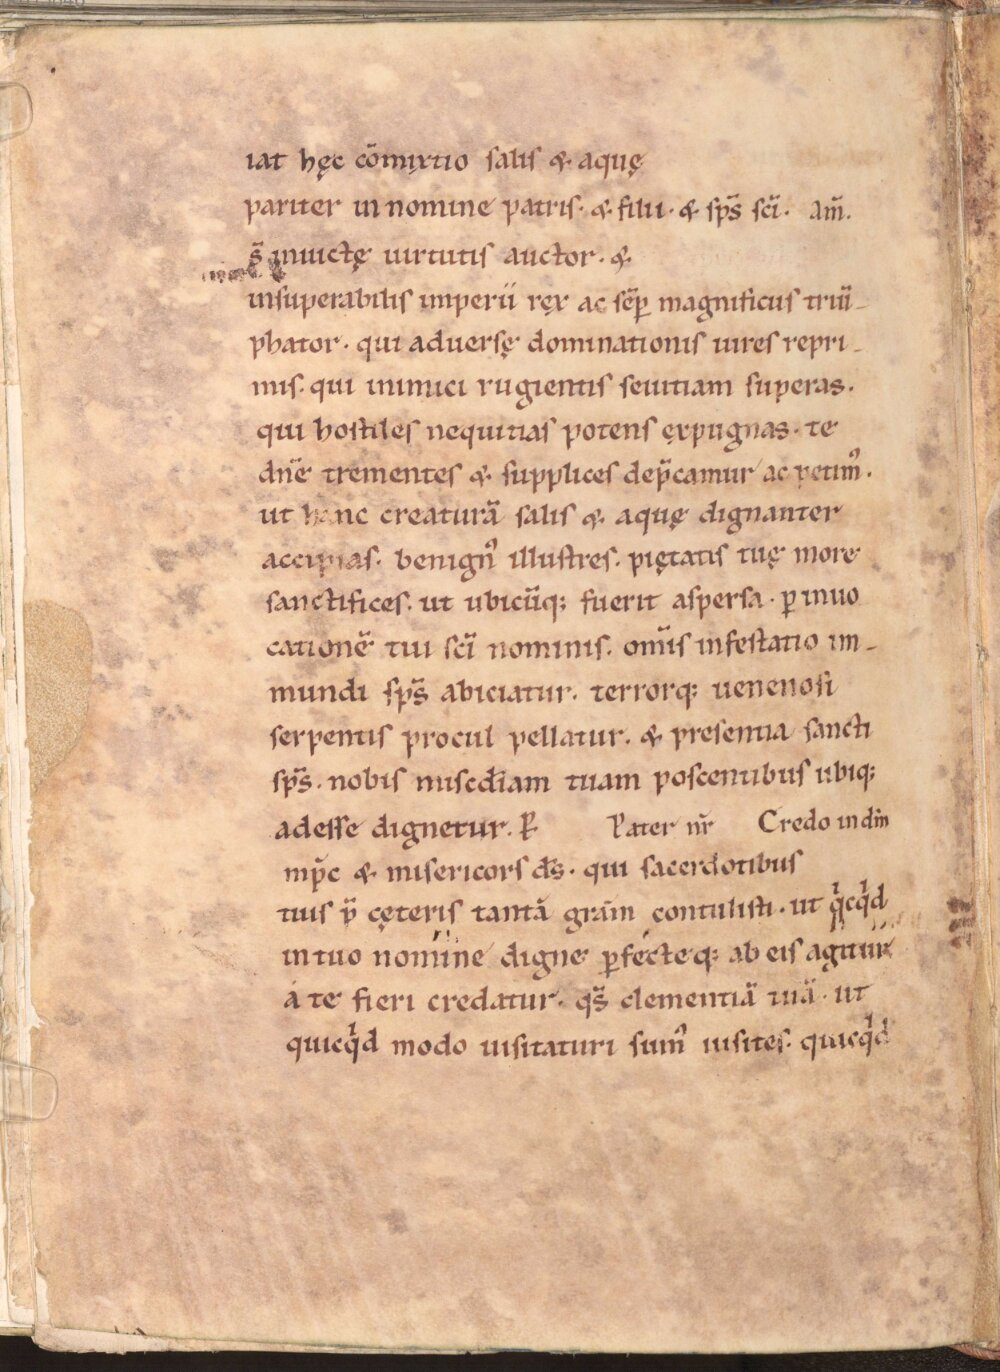 iat hęc cōmixtio salis & aquę
pariter in nomine patris · & filii · & sp̄s sc̄i · am̄.
s̄ inuictę uirtutis auctor · &
insuperabilis imperii rex ac sēp magnificus triū-
phator · qui aduersę dominationis uires repri-
mis · qui inimici rugientis seuitiam superas ·
qui hostiles nequitias potens expugnas · te
dn̄e trementes & supplices dep̄camur ac petim᾽ ·
ut hanc creaturā salis & aquę dignanter
accipias · benign᾽ illustres · pietatis tuę more
sanctifices · ut ubicūq; fuerit aspersa · ꝑ inuo
cationē tui sc̄i nominis · om̄is infestatio im-
mundi sp̄s abiciatur · terrorq; uenenosi
serpentis procul pellatur · & presentia sancti
sp̄s · nobis misc̄diam tuam poscentibus ubiq;
adesse dignetur · ꝑ Pater nr̄ Credo in dm̄
mp̄c & misericors ds̄ · qui sacerdotibus
tuis p̄ cęteris tantā grām contulisti · ut qͥcqͥd
in tuo nomine digne ꝑfecteq; ab eis agitur
a te fieri credatur · qs̄ clementiā tuā · ut
quicqͥd modo uisitaturi sum᾽ uisites · quicqͥd